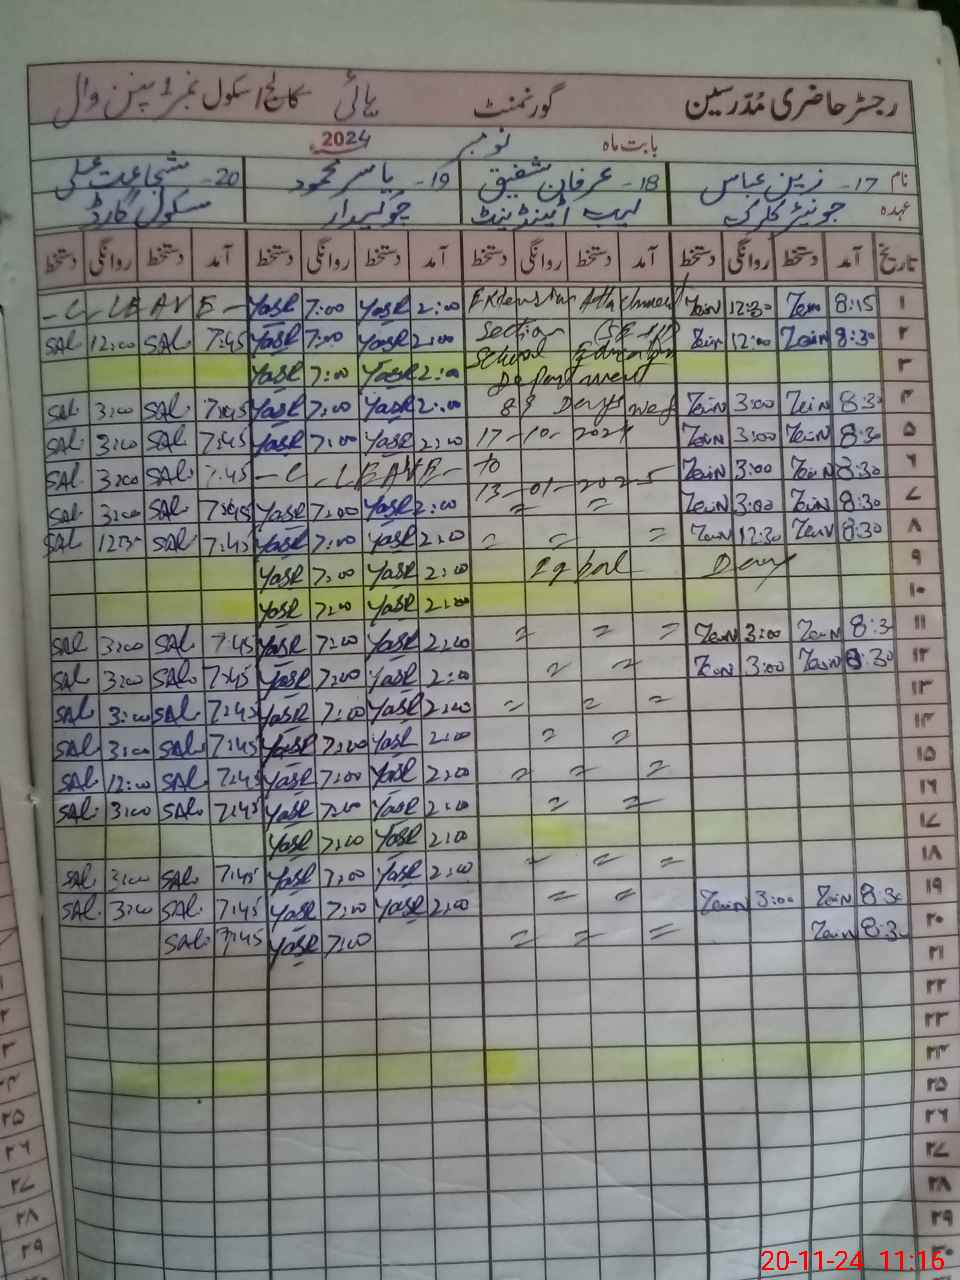 رجسٹر حاضری مُدرسین گورنمنٹ ہائی کالج اسکول نمبر 1 پنن وال
بابت ماہ نومبر 2024
نام 17- زین عباس 18- عرفان شفیق 19- یاسر محمود 20- شجاعت علی
عہدہ جونیئر کلرک لیب اٹینڈینٹ چوکیدار سکول گارڈ
تاریخ آمد دستخط روانگی دستخط آمد دستخط روانگی دستخط آمد دستخط روانگی دستخط آمد دستخط روانگی دستخط
۱ 8:15 Zain 12:30 Zain Extension Attachment 2:00 Yasir 7:00 Yasir - C. LEAVE -
۲ 8:30 Zain 12:00 Zain Section (SE 2:00 Yasir 7:00 Yasir 7:45 SAL 12:00 SAL
۳ School Education 2:00 Yasir 7:00 Yasir
Department
۴ 8:30 Zain 3:00 Zain 89 Days 2:00 Yasir 7:00 Yasir 7:45 SAL 3:00 SAL
۵ 8:30 Zain 3:00 Zain 17-10-2024 2:00 Yasir 7:00 Yasir 7:45 SAL 3:00 SAL
۶ 8:30 Zain 3:00 Zain to - C. LEAVE - 7:45 SAL 3:00 SAL
13-01-2025
۷ 8:30 Zain 3:00 Zain = = 2:00 Yasir 7:00 Yasir 7:45 SAL 3:00 SAL
۸ 8:30 Zain 12:30 Zain = = = 2:00 Yasir 7:00 Yasir 7:45 SAL SAL
۹ Iqbal Day 2:00 Yasir 7:00 Yasir
۱۰ 2:00 Yasir 7:00 Yasir
۱۱ 8:3 Zain 3:00 Zain = = = 2:00 Yasir 7:00 Yasir 7:45 SAL 3:00 SAL
۱۲ 8:30 Zain 3:00 Zain = = 2:00 Yasir 7:00 Yasir 7:45 SAL 3:00 SAL
۱۳ = = = 2:00 Yasir 7:00 Yasir 7:45 SAL 3:00 SAL
۱۴ = = 2:00 Yasir 7:00 Yasir 7:45 SAL 3:00 SAL
۱۵ = = = 2:00 Yasir 7:00 Yasir 7:45 SAL 12:00 SAL
۱۶ = = 2:00 Yasir 7:00 Yasir 7:45 SAL 3:00 SAL
۱۷ 2:00 Yasir 7:00 Yasir
۱۸ = = = 2:00 Yasir 7:00 Yasir 7:45 SAL 3:00 SAL
۱۹ 8:30 Zain 3:00 Zain = = 2:00 Yasir 7:00 Yasir 7:45 SAL 3:00 SAL
۲۰ 8:30 Zain = = = 7:00 Yasir 7:45 SAL
۲۱
۲۲
۲۳
۲۴
۲۵
۲۶
۲۷
۲۸
۲۹
۳۰
20-11-24 11:16